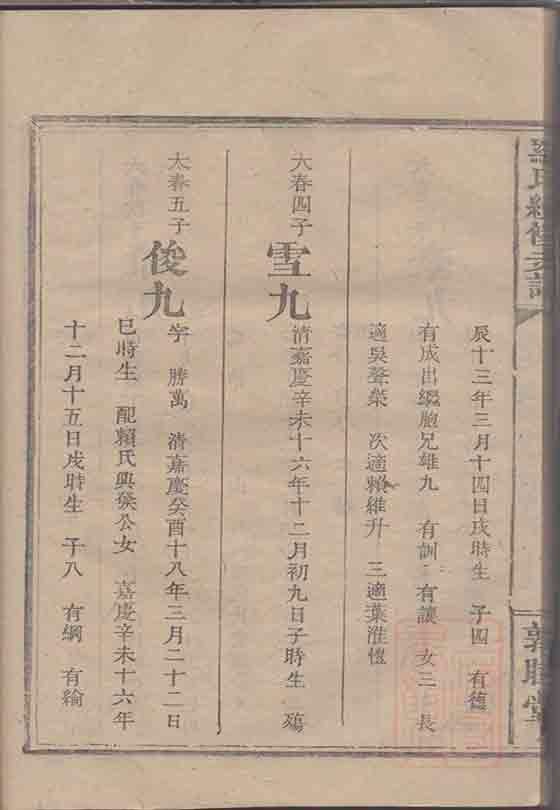 氏續修支譜
敦睦堂
辰十三年三月十四日戌時生 子四 有德
有成出繼胞兄雄九 有訓 有讓 女三 長
適吳聲榮 次適賴維升 三適葉淮愷
大春四子 雪九 清嘉慶辛未十六年十二月初九日子時生 殤
大春五子 俊九 字勝萬 清嘉慶癸酉十八年三月二十二日
巳時生 配賴氏興發公女 嘉慶辛未十六年
十二月十五日戌時生 子八 有綱 有綸